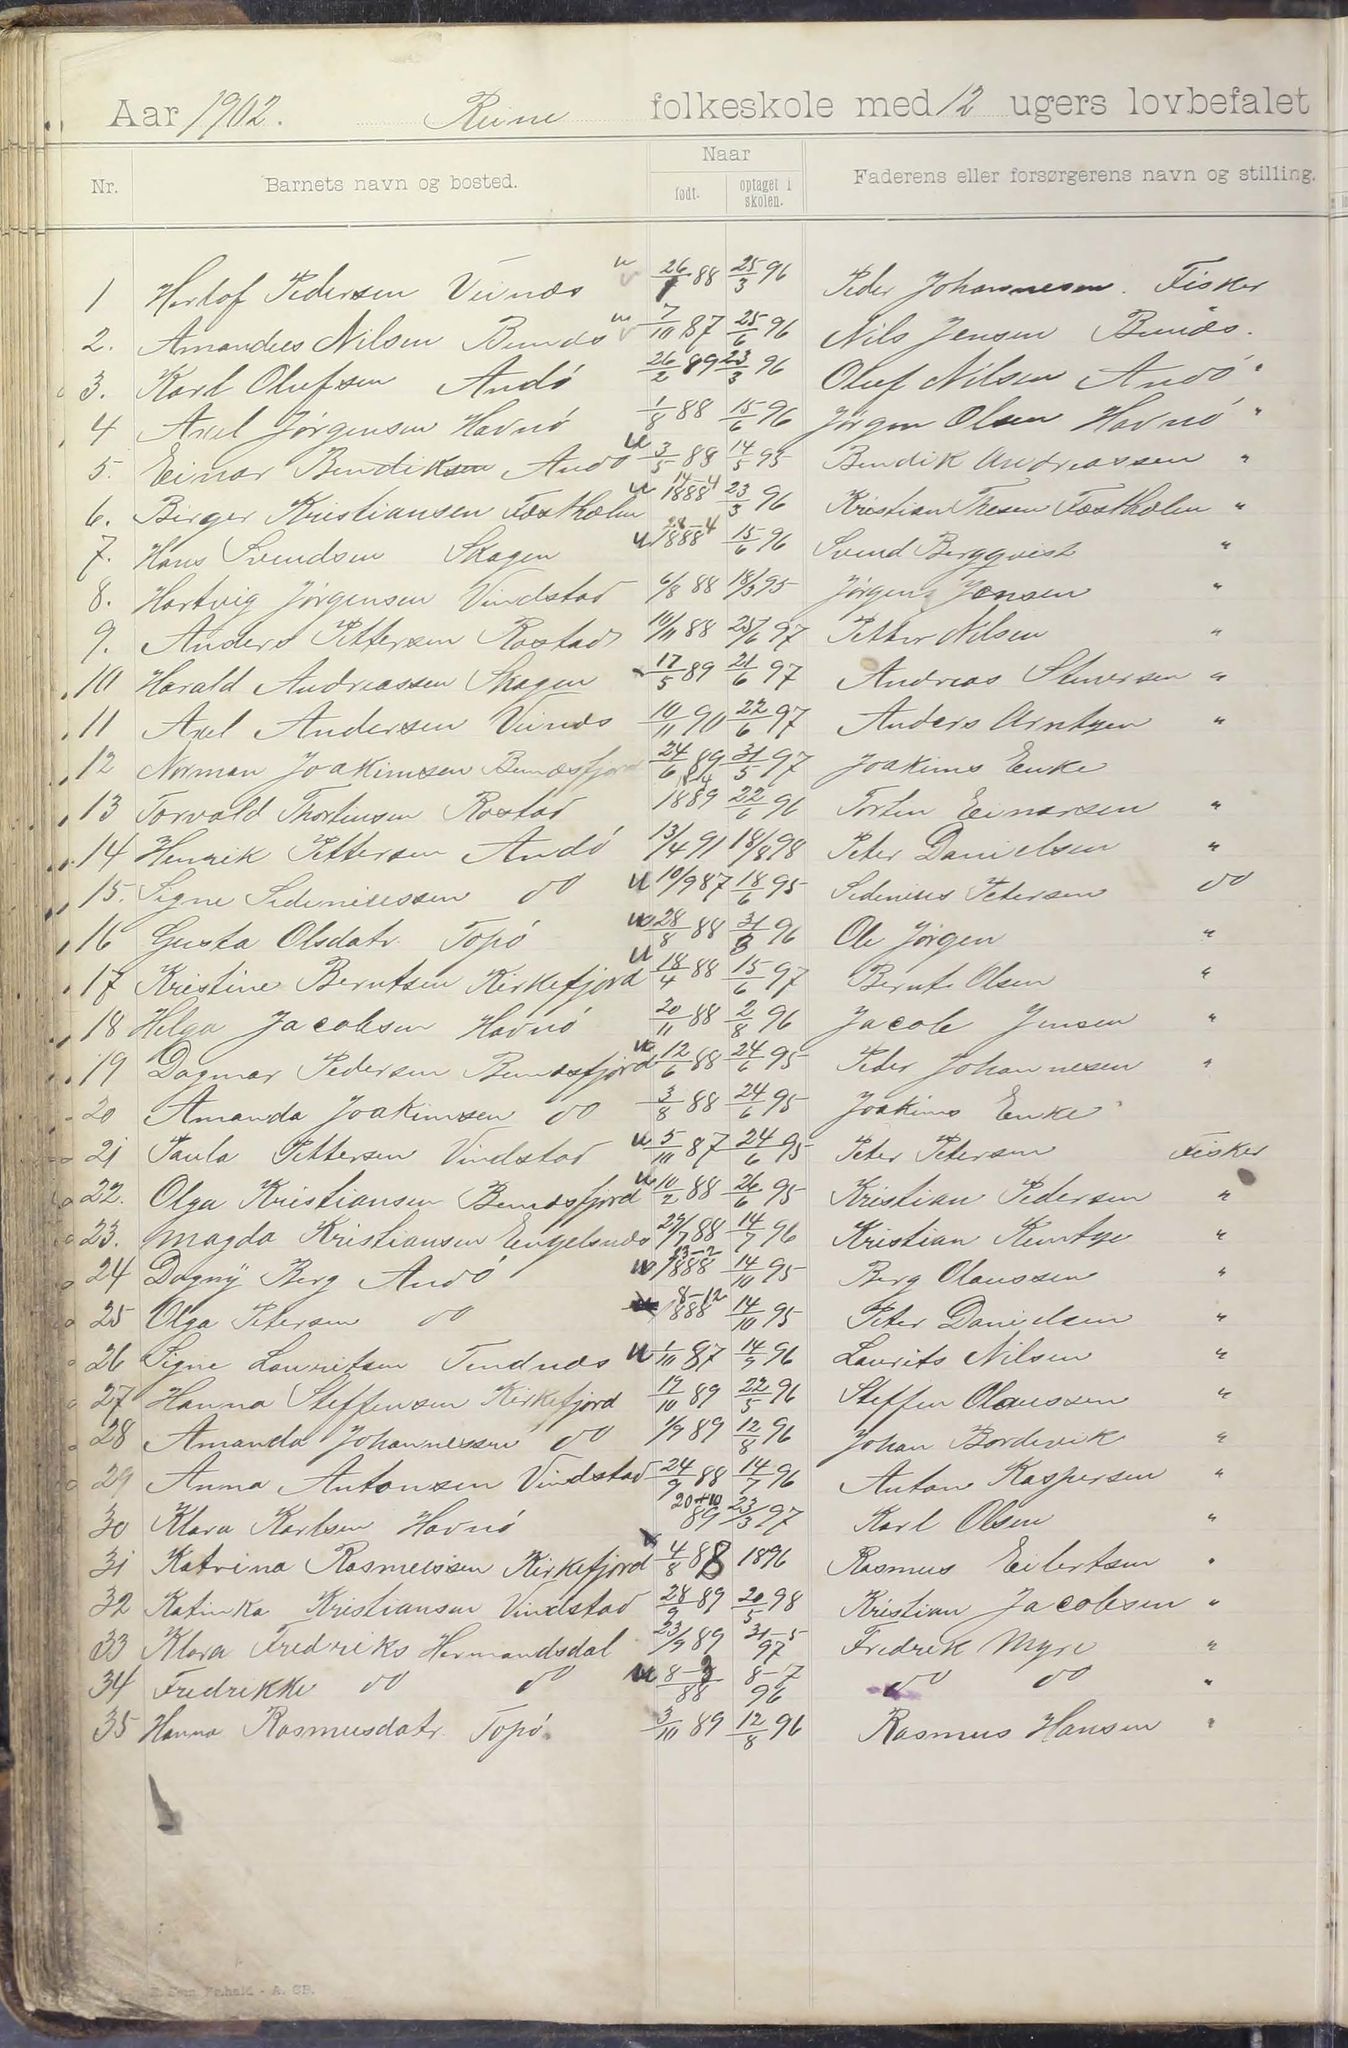 Aar 1902. Reine folkeskole med 12 ugers lovbefalet
Nr. Barnets navn og bosted. Naar Faderens eller forsørgerens navn og stilling.
født. optaget i skolen.
1 Herlof Pedersen Veinæs 26/1 88 25/3 96 Peder Johannesen. Fisker
2. Amandus Nilsen Bunæs 7/10 87 25/6 96 Nils Jensen Bunæs. "
3. Karl Olufsen Andö 26/2 89 23/3 96 Oluf Nilsen Andö "
4 Axel Jörgensen Havnö 1/8 88 15/6 96 Jörgen Olsen Havnö "
5. Einar Bendiksen Andö u 3/5 88 14/5 95 Bendik Andreassen "
6. Birger Kristiansen Fæstholm u 14-4 1888 23/3 96 Kristian Thesen Fæstholm "
7. Hans Svendsen Skagen u 28-4 1888 15/6 96 Svend Bergqvist "
8. Hartvig Jörgensen Vindstad 6/8 88 18/3 95 Jörgen Jensen "
9. Anders Pettersen Rostad 10/11 88 25/6 97 Petter Nilsen "
10 Harald Andreassen Skagen 17/5 89 21/6 97 Andreas "
11 Axel Andersen Veinæs 10/11 90 22/6 97 Anders Arntzen "
12 Norman Joakimsen Bunæsfjord 24/6 89 31/5 97 Joakims Enke
13 Torvald Thortinsen Rostad 1889 22/6 96 Tortin Einarsen "
14 Henrik Pettersen Andö 13/4 91 18/8 98 Peter Danielsen "
15. Signe Sideniussen do u 10/9 87 18/6 95 Sidenius Petersen do
16 Gusta Olsdatr. Topö u 28/8 88 31/3 96 Ole Jörgen "
17 Kristine Berntsen Kirkefjord u 18/4 88 15/6 97 Bernt Olsen "
18 Helga Jacobsen Havnö 20/11 88 2/8 96 Jacob Jensen "
19 Dagmar Pedersen Bunæsfjord u 12/6 88 24/6 95 Peder Johannesen "
20 Amanda Joakimsen do 3/8 88 24/6 95 Joakims Enke
21 Paula Pettersen Vindstad u 5/10 87 24/6 95 Peter Petersen Fisker
22. Olga Kristiansen Bunæsfjord u 10/2 88 26/6 95 Kristian Pedersen "
23. Magda Kristiansen Engelsnæs 29/7 88 14/7 96 Kristian "
24 Dagny Berg Andö u 13-2 1888 14/10 95 Berg Olaussen "
25 Olga Petersen do 8-12 1888 14/10 95 Peter Danielsen "
26 Signe Lauritsen Tindnæs u 1/10 87 14/9 96 Laurits Nilsen "
27 Hanna Steffensen Kirkefjord 19/10 89 22/5 96 Steffen Olaussen "
28 Amanda Johannessen do 1/9 89 12/8 96 Johan Bordevik "
29 Anna Antonsen Vindstad 24/9 88 14/7 96 Anton Kaspersen "
30 Klara Karlsen Havnö 20-10 89 23/3 97 Karl Olsen "
31 Katrina Rasmussen Kirkefjord 4/8 88 1896 Rasmus Eilertsen "
32 Katinka Kristiansen Vindstad 28/9 89 20/5 98 Kristian Jacobsen "
33 Klara Fredriks Hermandsdal 23/9 89 31-5 97 Fredrik Myre "
34 Fredrikke do do u 8-3 88 8-7 96 do do "
35 Hanna Rasmusdatr. Topö. 3/10 89 12/8 96 Rasmus Hansen "